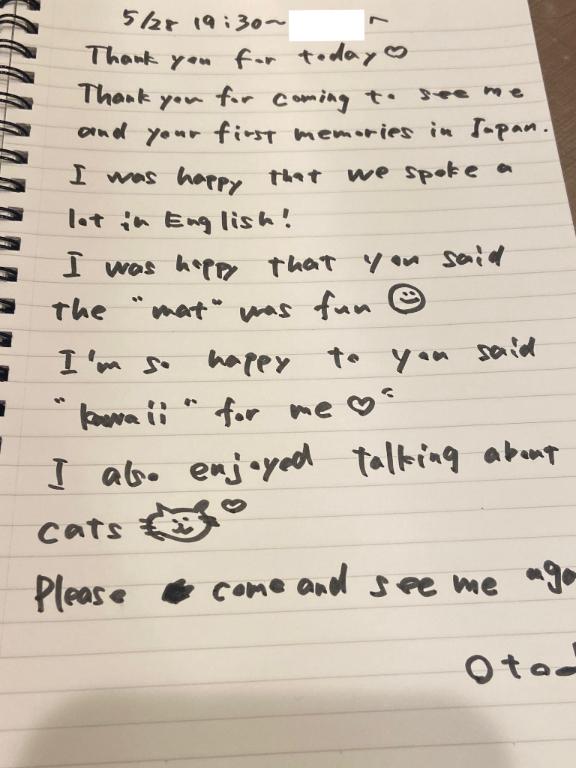 5/28 19:30~
Thank you for today♡
Thank you for coming to see me
and your first memories in Japan.
I was happy that we spoke a
lot in English!
I was happy that you said
the "mat" was fun ☺
I'm so happy to you said
"kawaii" for me ♡
I also enjoyed talking about
cats ♡
Please come and see me